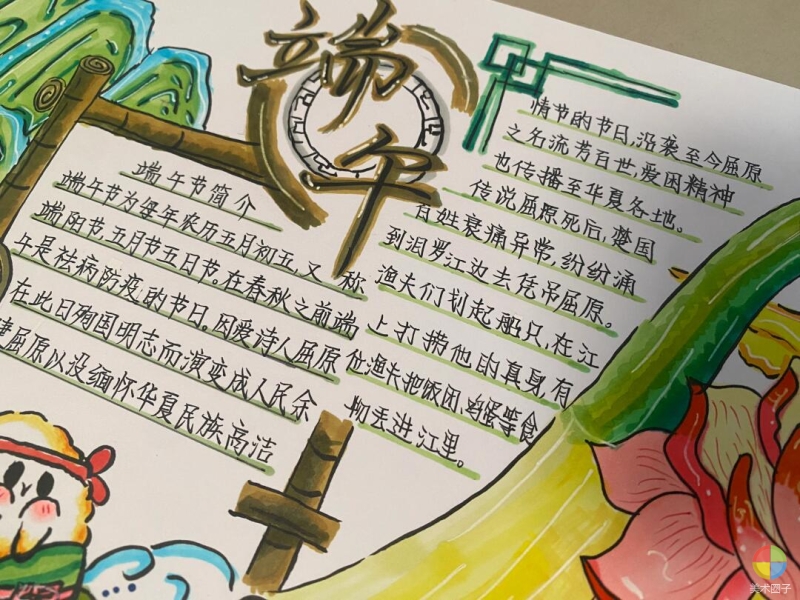 端午
端午节简介
端午节为每年农历五月初五,又称
端阳节五月节五日节。在春秋之前端
午是祛病防疫的节日。因爱诗人屈原
在此日殉国明志而演变成人民余
屈原以没缅怀华夏民族高洁
情节的节日,沿袭至今屈原
之名流芳百世,爱因精神
也传播至华夏各地。
传说屈原死后,楚国
百姓哀痛异常,纷纷涌
到汨罗江边去凭吊屈原。
渔夫们划起船只,在江
上打捞他的真身,有
位渔夫把饭团,鸡蛋等食
物丢进江里。
美术圈子